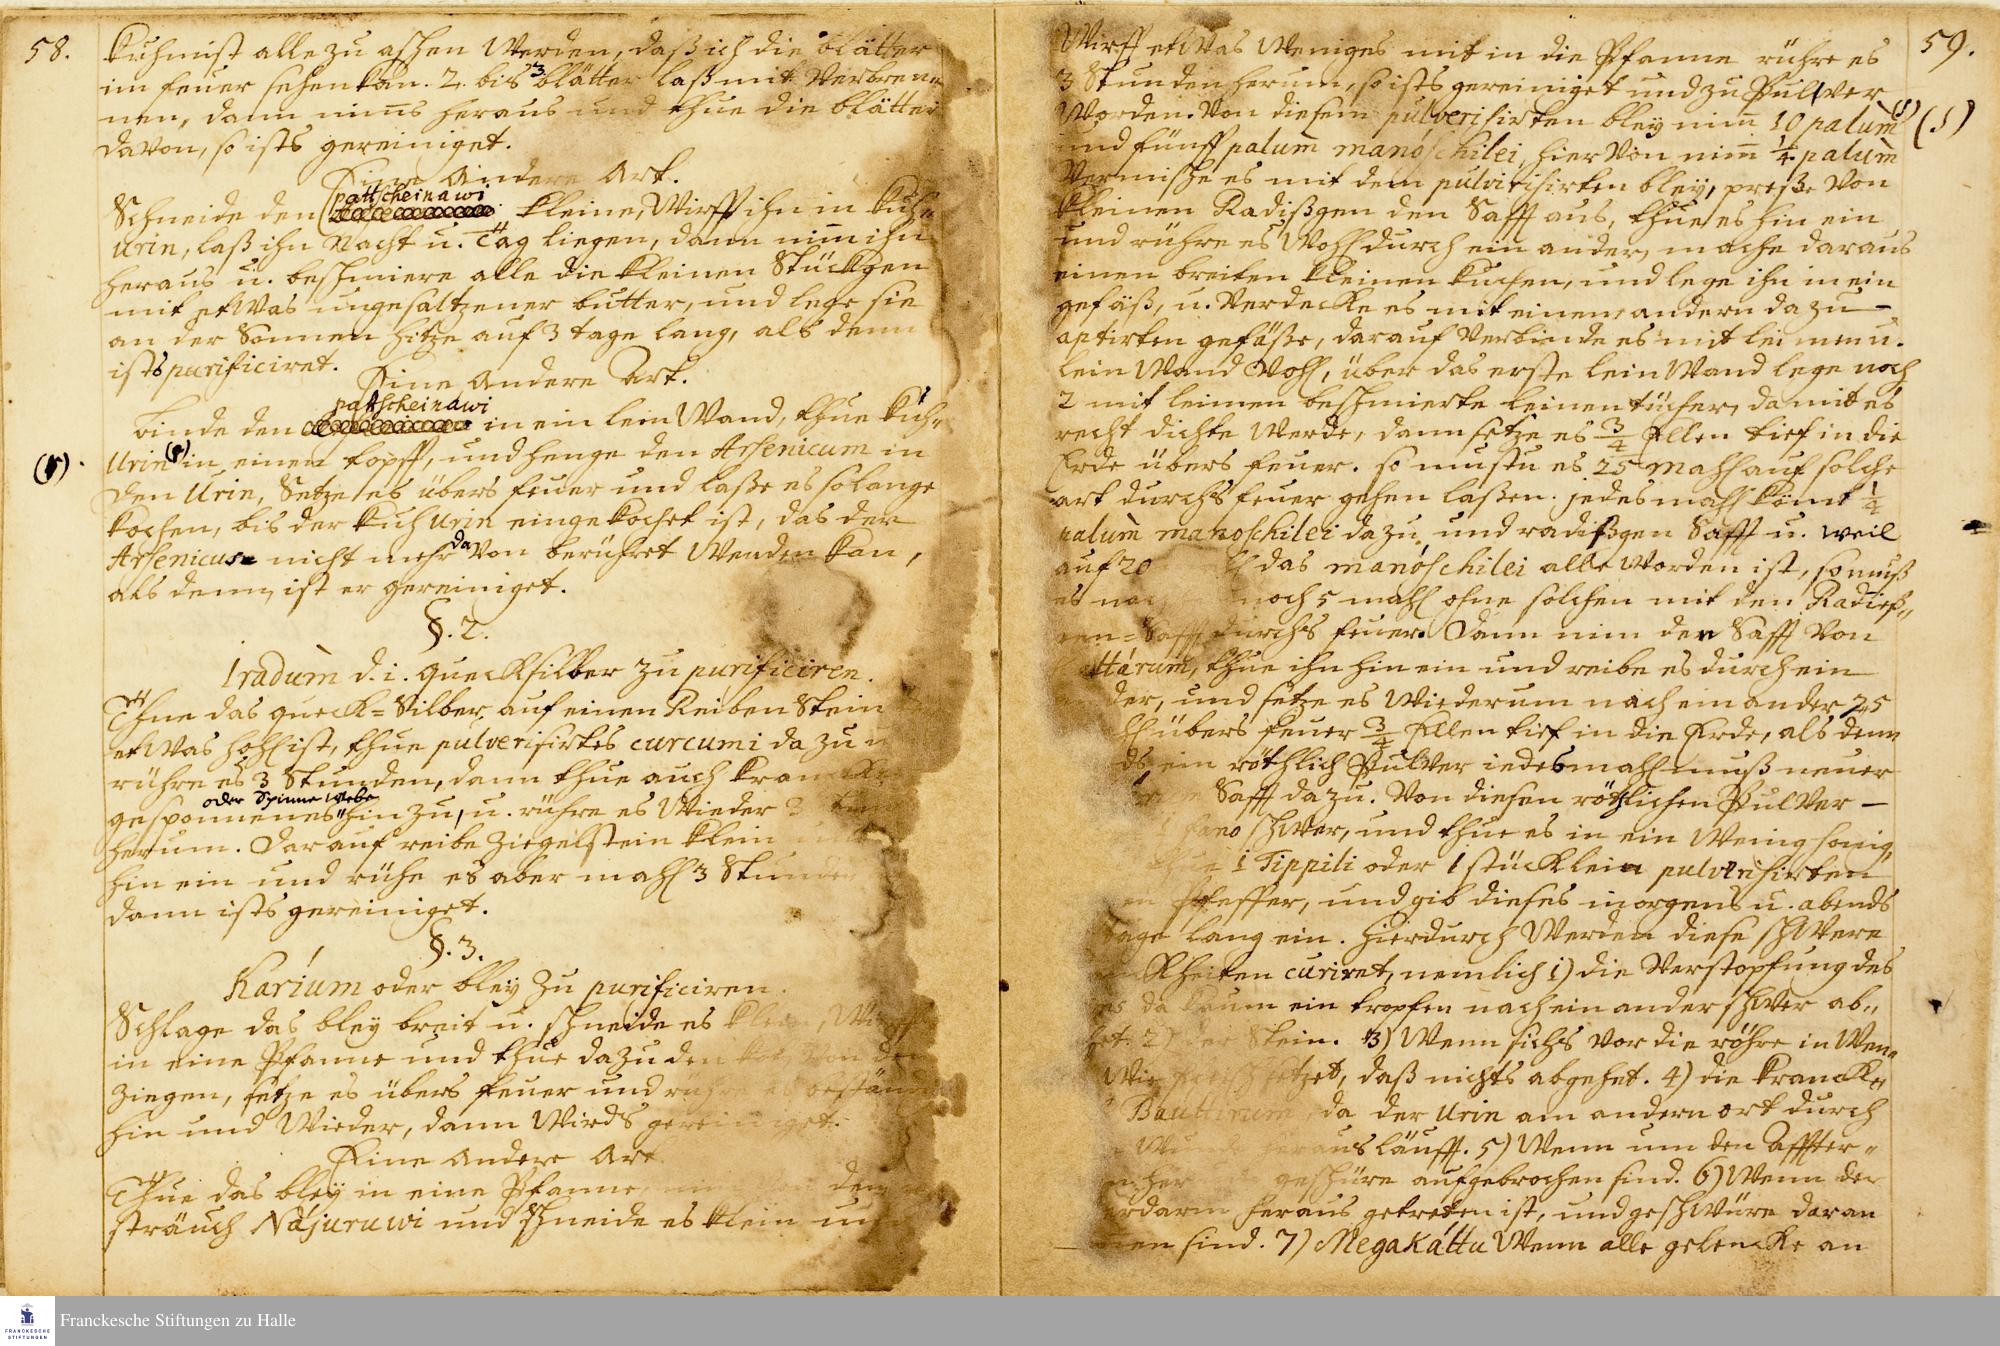 58.
Kuhmist alle zu aschen werden, daß ich die blätter
im feuer sehen kan. 2. bis 3 blätter laß mit verbren-
nen, dann nims heraus und thue die blätter
davon, so ists gereiniget.
Eine andere Art.
Schneide den pattscheinawi kleine, wirff ihn in Kuh-
Urin, laß ihn Nacht u. Tag liegen, dann nim ihn
heraus u. beschmiere alle die kleinen Stückgen
mit etwas ungesaltzener butter, und lege sie
an der Sonnen hitze auf 3 tage lang, als denn
ists purificiret.
Eine andere Art.
binde den pattscheinawi in ein lein Wand, thue Kuh-
(r) Urin (r) in einen topff, und henge den Arsenicum in
den Urin, Setze es übers feuer und laße es so lange
kochen, bis der Kuh Urin eingekochet ist, das der
Arsenicus nicht mehr davon berühret werden kan,
als denn, ist er gereiniget.
§. 2.
Iradum d. i. queckſilber zu purificiren.
Thue das queck=Silber auf einen Reiben Stein
etwas hohl ist, thue pulverisirtes curcumi dazu
rühre es 3 Stunden, dann thue auch
gesponnenes oder Spinne webe hinzu, u. rühre es wieder 3
herum. Darauf reibe Ziegelstein klein
hin ein und rühe es aber mahl 3 Stunden
dann ists gereiniget.
§. 3.
Karíum oder bley zu purificiren.
Schlage das bley breit u. schneide es klein, wirff
in eine Pfanne und thue dazu den koth von den
Ziegen, setze es übers feuer und rühre es beständ
hin und wieder, dann wirds gereiniget.
Eine andere Art
Thue das bley in eine Pfanne, den
sträuch Nájuruwi und schneide es klein und
59.
Wirff etwas weniges mit in die Pfanne rühre es
3 Stunden herum, so ists gereiniget und zu Pulver
worden. Von diesem pulverisirten bley nim 10 palum (s) (s)
und fünff palum manóschilei, hier von nim ¼ palum
vermische es mit dem pulverisirten bley, preße von
kleinen Radißgen den Safft aus, thue es hin ein
und rühre es wohl durch ein ander, mache daraus
einen breiten kleinen kuchen, und lege ihn in ein
gefäß, u. verdecke es mit einem andern dazu
aptirten gefäße, darauf verbinde es mit leimen u.
lein Wand wohl, über das erste lein Wand lege noch
2 mit leimen beschmierte leinen tücher, damit es
recht dichte werde, dann setze es ¾ Ellen tief in die
Erde übers feuer. so mustu es 25 mahl auf solche
art durchs feuer gehen laßen. jedes mahl kömt ¼
palum manoschilei dazu, und radißgen Safft u. weil
auf 20 das manóschilei alle worden ist, so muß
es noch noch 5 mahl ohne solchen mit den Radieß-
Safft durchs feuer. Dann nim den Safft von
ttárum, thue ihn hin ein und reibe es durch ein
der, und setze es wiederum nach ein ander 25
übers feuer ¾ Ellen tief in die Erde, als denn
ein röthlich Pulver iedes mahl muß neuer
Safft dazu. Von diesen röthlichen Pulver
fano schwer, und thue es in ein wenig honig,
1 Tippili oder 1 stücklein pulverisirten
Pfeffer, und gib dieses morgens u. abends
tage lang ein. hierdurch werden diese schwere
ckheiten curiret, nemlich 1) die Verstopfung des
da kaum ein tropfen nach ein ander schwer ab-
het. 2) der Stein. 3) Wenn sichs vor die röhre
setzet, daß nichts abgehet. 4) die kranck-
Bauttirum, da der Urin am andern ort durch
heraus läufft. 5) Wenn um den Affter-
her geschüre aufgebrochen sind. 6) Wenn der
darm heraus getreten ist, und geschwüre daran
sind. 7) Megakáttu Wenn alle gelencke an
Franckesche Stiftungen zu Halle
FRANCKESCHE
STIFTUNGEN